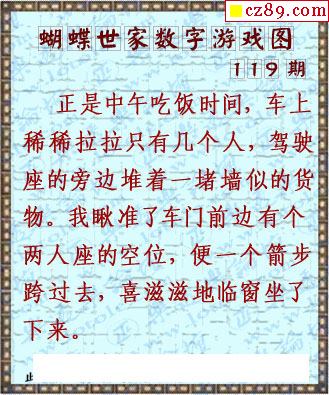 cz89.com
蝴蝶世家数字游戏图
119期
正是中午吃饭时间，车上
稀稀拉拉只有几个人，驾驶
座的旁边堆着一堵墙似的货
物。我瞅准了车门前边有个
两人座的空位，便一个箭步
跨过去，喜滋滋地临窗坐了
下来。